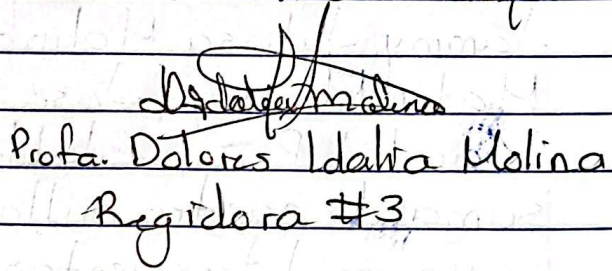 Profa. Dolores Idalia Molina
Regidora #3